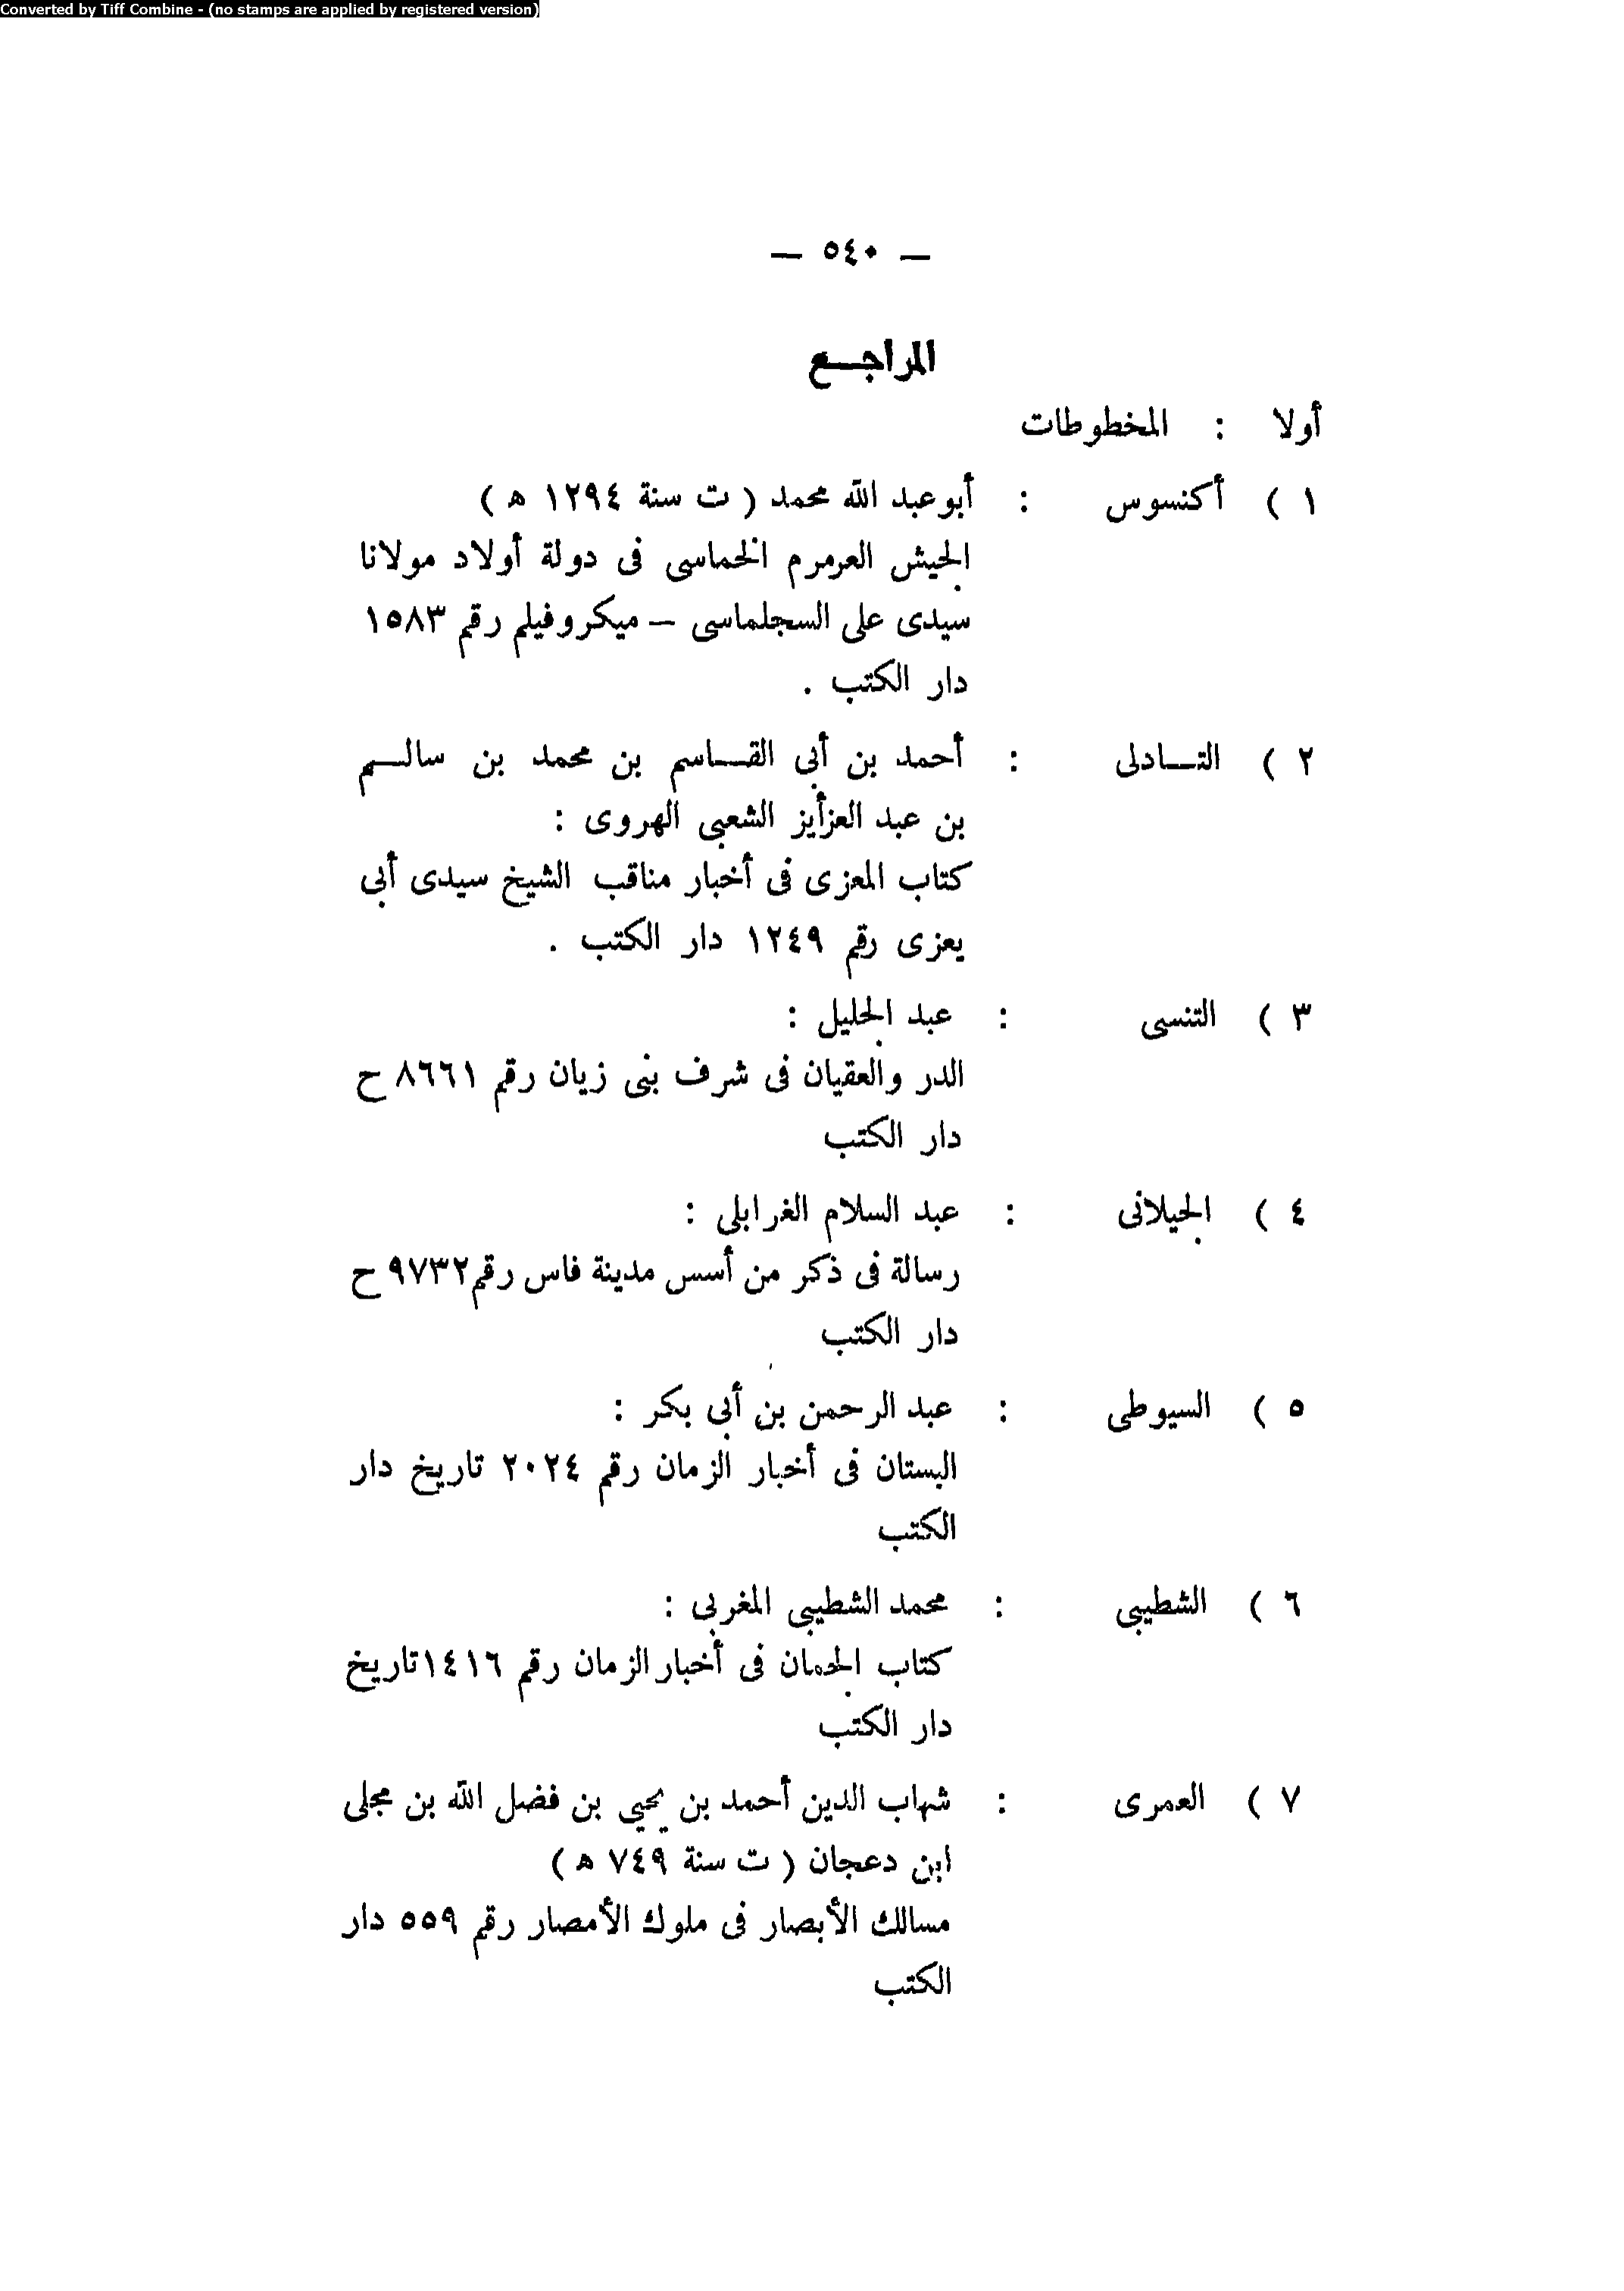 Converted by Tiff Combine - (no stamps are applied by registered version)
— ٥٤٠ —
المراجـع
أولا : المخطوطات
١ ) أكنسوس : أبو عبد الله محمد ( ت سنة ١٢٩٤ هـ )
الجيش العرمرم الخماسى فى دولة أولاد مولانا
سيدى على السجلماسى – ميكروفيلم رقم ١٥٨٣
دار الكتب .
٢ ) التـادلى : أحمد بن أبى القـاسم بن محمد بن سالـم
بن عبد العزأيز الشعبى الهروى :
كتاب المعزى فى أخبار مناقب الشيخ سيدى أبى
يعزى رقم ١٢٤٩ دار الكتب .
٣ ) التنسى : عبد الجليل :
الدر والعقيان فى شرف بنى زيان رقم ٨٦٦١ ح
دار الكتب
٤ ) الجيلانى : عبد السلام الغرابلى :
رسالة فى ذكر من أسس مدينة فاس رقم ٩٧٣٢ ح
دار الكتب
٥ ) السيوطى : عبد الرحمن بن أبى بكر :
البستان فى أخبار الزمان رقم ٢٠٢٤ تاريخ دار
الكتب
٦ ) الشطيبى : محمد الشطيبى المغربى :
كتاب الجمان فى أخبار الزمان رقم ١٤١٦ تاريخ
دار الكتب
٧ ) العمرى : شهاب الدين أحمد بن يحيي بن فضل الله بن مجلى
ابن دعجان ( ت سنة ٧٤٩ هـ )
مسالك الأبصار فى ملوك الأمصار رقم ٥٥٩ دار
الكتب